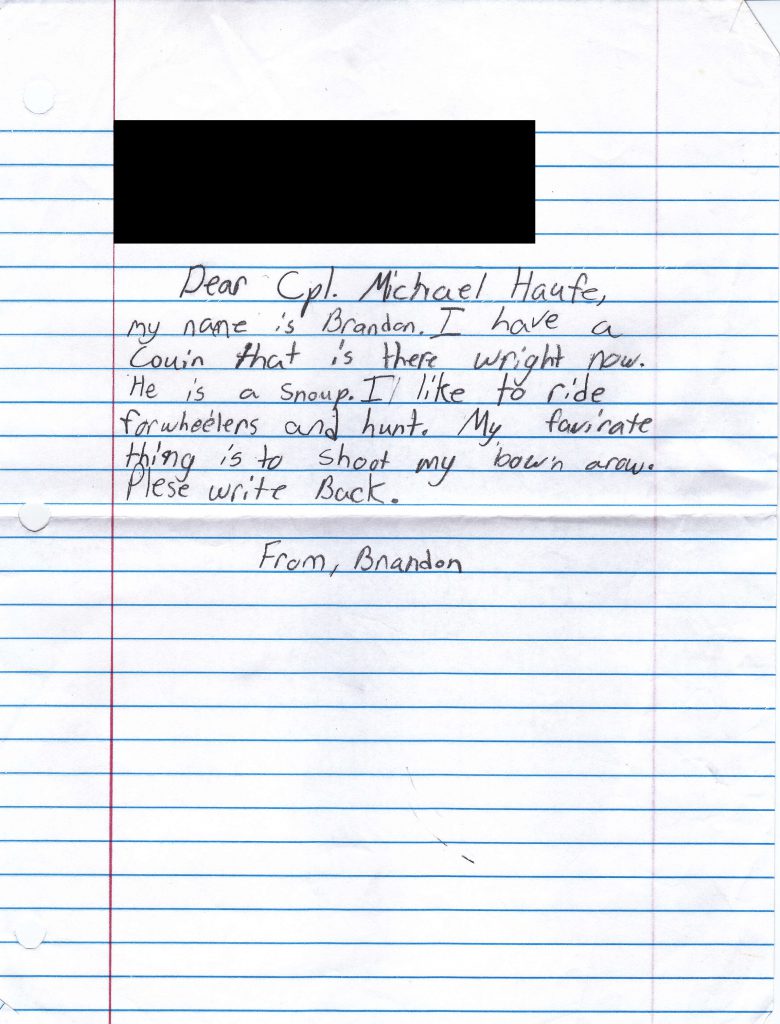 Dear Cpl. Michael Haufe,
my name is Brandon. I have a
Couin that is there wright now.
He is a snoup. I like to ride
forwheelers and hunt. My favirate
thing is to shoot my bow'n arow.
Plese write Back.
From, Brandon